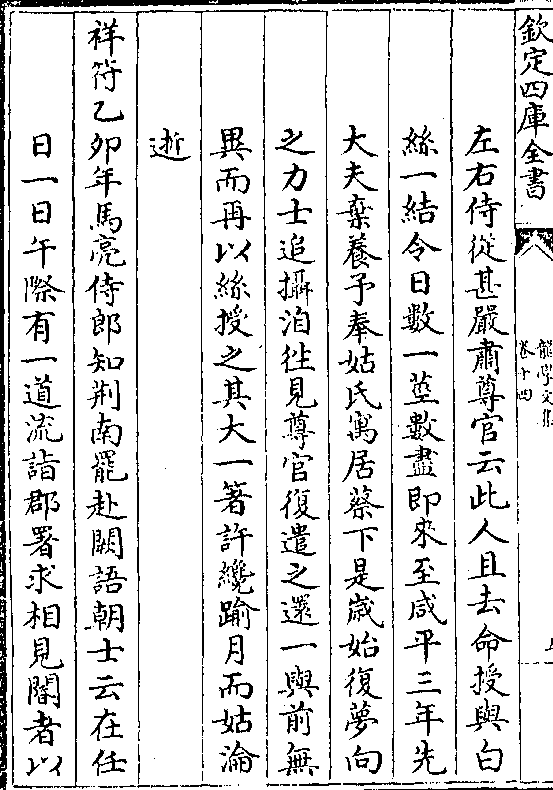 欽定四庫全書
龍學文集
卷十四
左右侍從甚嚴肅尊官云此人且去命授與白
絲一結令日數一莖數盡即來至咸平三年先
大夫棄養予奉姑氏寓居蔡下是歲始復夢向
之力士追攝洎徃見尊官復遣之還一與前無
異而再以絲授之其大一箸許纔踰月而姑淪
逝
祥符乙卯年馬亮侍郎知荆南罷赴闕語朝士云在任
日一日午際有一道流詣郡署求相見閽者以